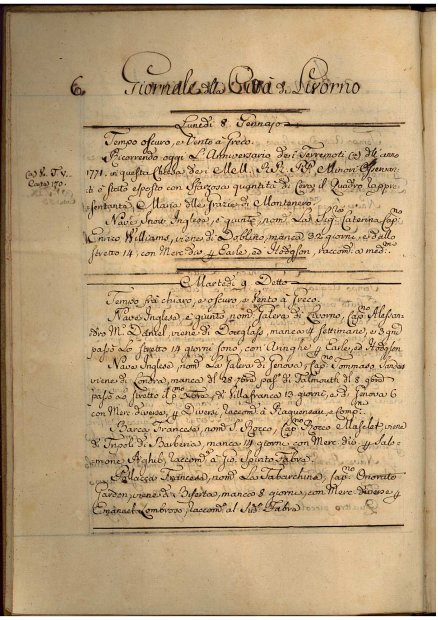 6. Giornale della Città di Livorno
Lunedì 8 Gennajo
Tempo oscuro, e Vento à Greco.
Ricorrendo oggi L'Anniversario de i Terremoti (a) dell'anno
1771. in questa Chiesa de i M.M. R.R. P.P. Minori Osservan-
ti è stato esposto con sfarzosa quantità di Cera il Quadro rappre-
sentante Maria delle Grazie di Montenero.
(a) V. T. V.
Carta 170.
Nave Snow Inglese, è giunto, nom.ta La Sig.ra Caterina, Cap.no
Enrico Williams, viene di Doblino, manca 32 giorni, e dallo
stretto 14, con Merc. die p Earle, ed Hodgson, raccom. a med.mi
Martedì 9 Detto
Tempo frà chiaro, e oscuro, e Vento à Greco.
Nave Inglese, è giunto, nom.ta Galera di Livorno, Cap.no Alessan-
dro M.c viene di Douglass, manca 7 settimane, e
passò Lo stretto 14 giorni sono, con Aringhe p Earle, ed Hodgson
Nave Inglese, nom.ta La Galera di Genova, Cap.no Tommaso
viene di Londra, manca dal 28 7bre pas.o di Falmouth di 8 9bre
passò Lo stretto il p.mo Xbre, di Villafranca 13 giorni, e di Genova 6
con Merc. diverse, p Diversi, Raccom. à Ragueneau, e Comp.i
Barca Francese, nom.ta S. Rocco, Cap.no Rocco Maselet, viene
di Tripoli di Barberia, manca 14 giorni con Merc. die p Salo-
mone Arghib, Raccom. a Gio. Spirito Fabra.
Pollacca Francese, nom.ta La Tabarchina, Cap.no Onorato
Gardon, viene di Biserta, manca 8 giorni, con Merc. diverse p
Emanuel Lombroso Raccom. al Sud.o Fabra